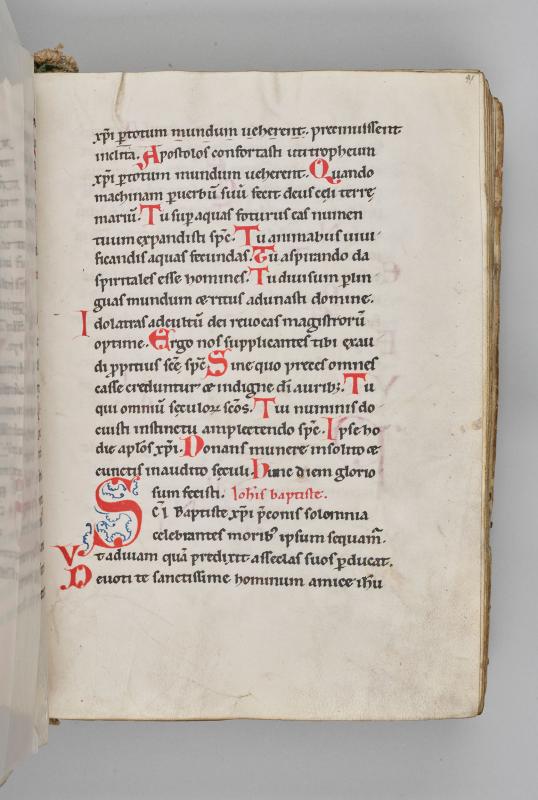 91
xp̄i ꝑ totum mundum ueherent. p̄remulissent
melita. Apostolos confortasti uti tropheum
xp̄i ꝑ totum mundum ueherent. Quando
machinam ꝑ uerbū suū fecit deus celi terrę
mariū. Tu sup̄ aquas foturus eas numen
tuum expandisti sp̄c. Tu animabus uiui
ficandis aquas fecundas. Tu aspirando da
spiritales esse homines. Tu diuisum ꝑ lin
guas mundum & ritus adunasti domine.
Idolatras ad cultū dei reuocas magistrorū
optime. Ergo nos supplicantes tibi exau
di ꝓpitius sc̄e sp̄c. Sine quo preces omnes
casse creduntur & indignę dī auribꝫ. Tu
qui omniū sęculoꝝ sc̄os. Tui numinis do
cuisti instinctu amplectendo sp̄c. Ipse ho
die apl̄os xp̄i. Donans munere insolito &
cunctis inaudito sęculi. Hunc diem glorio
sum fecisti. Ioh̄is baptistę.
SC̄I Baptistę xp̄i p̄conis solomnia
celebrantes moribꝰ ipsum sequam̄.
Vt ad uiam quā predixit asseclas suos ꝑducat.
Deuoti te sanctissime hominum amice ih̄u